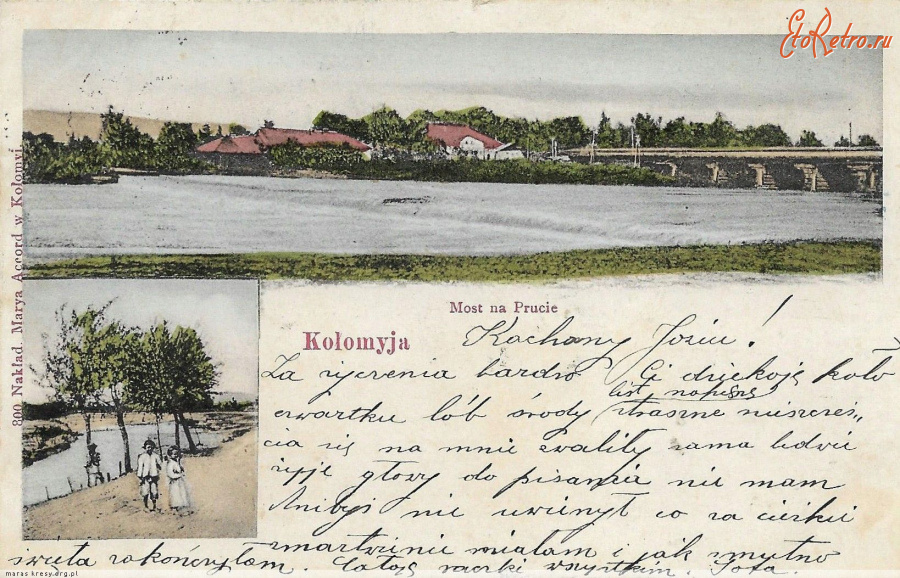 EtoRetro.ru
800 Nakład. Marya Accord w Kołomyi.
Most na Prucie
Kołomyja
Kochany Joziu!
Za życzenia bardzo Ci dziękuję koło
list napiszę
czwartku lób środy straszne nieszczęś„
cia się na mnie zwaliły sama ledwie
żyję głowy do pisania nie mam
Anibyś nie uwierzył co za ciężkie
zmartwienie miałam i jak smutno
święta zakończyłam. Całuję rączki wszystkim. Zofa.
maras.kresy.org.pl